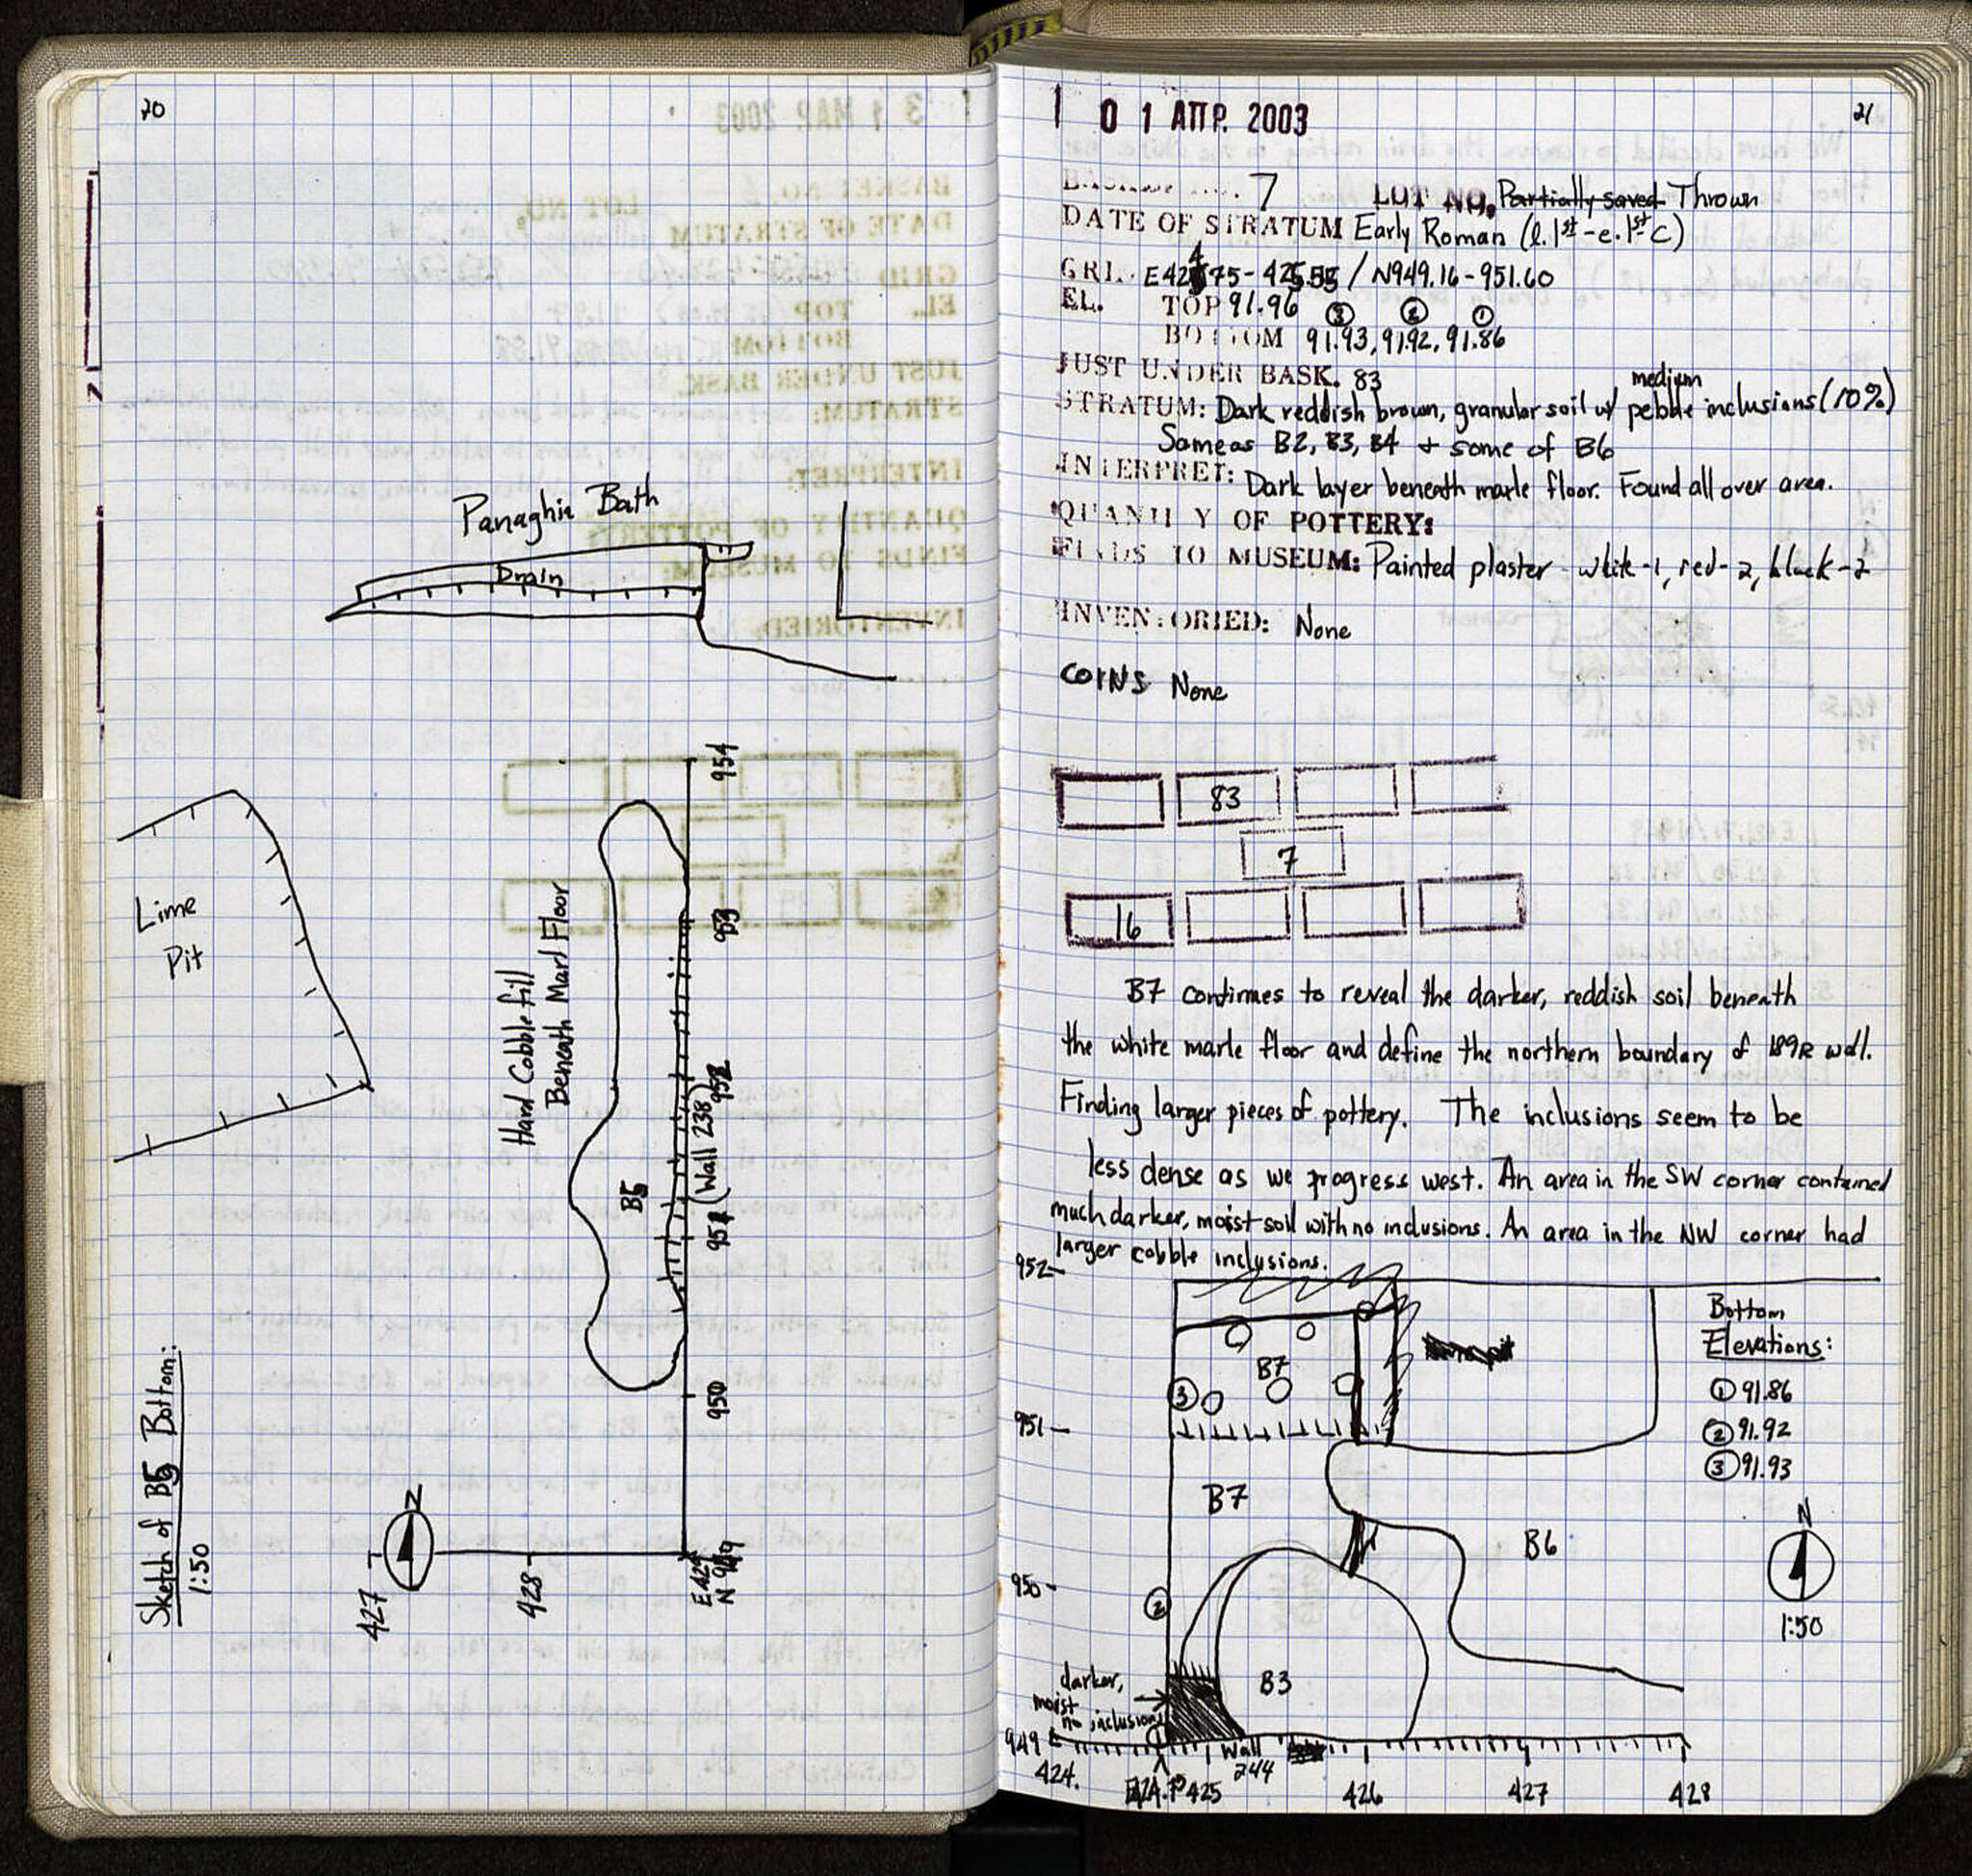 20
Panaghia Bath
Drain
Lime
Pit
Hard Cobble fill
Beneath Marl Floor
B5
(Wall 238)
954
953
952
951
950
E429
N 949
428
427
N
Sketch of B5 Bottom:
1:50
21
01 ΑΠΡ. 2003
7 LOT NO. Partially saved Thrown
DATE OF STRATUM Early Roman (l. 1st - e. 1st C)
GRI. E424.75 - 425.55 / N949.16 - 951.60
EL. TOP 91.96 ③ ② ①
BOTTOM 91.93, 91.92, 91.86
JUST UNDER BASK. 83
medium
STRATUM: Dark reddish brown, granular soil w/ pebble inclusions (10%)
Same as B2, B3, B4 + some of B6
INTERPRET: Dark layer beneath marle floor. Found all over area.
QUANTITY OF POTTERY:
FINDS TO MUSEUM: Painted plaster - white-1, red-2, black-2
INVENTORIED: None
COINS None
83
7
16
B7 continues to reveal the darker, reddish soil beneath
the white marle floor and define the northern boundary of 189R wall.
Finding larger pieces of pottery. The inclusions seem to be
less dense as we progress west. An area in the SW corner contained
much darker, moist soil with no inclusions. An area in the NW corner had
larger cobble inclusions.
952
Bottom
Elevations:
① 91.86
② 91.92
③ 91.93
B7
③
951
B7
B6
N
1:50
950
②
B3
darker,
moist
no inclusions
949
①
Wall
244
424.
E424.75
425
426
427
428